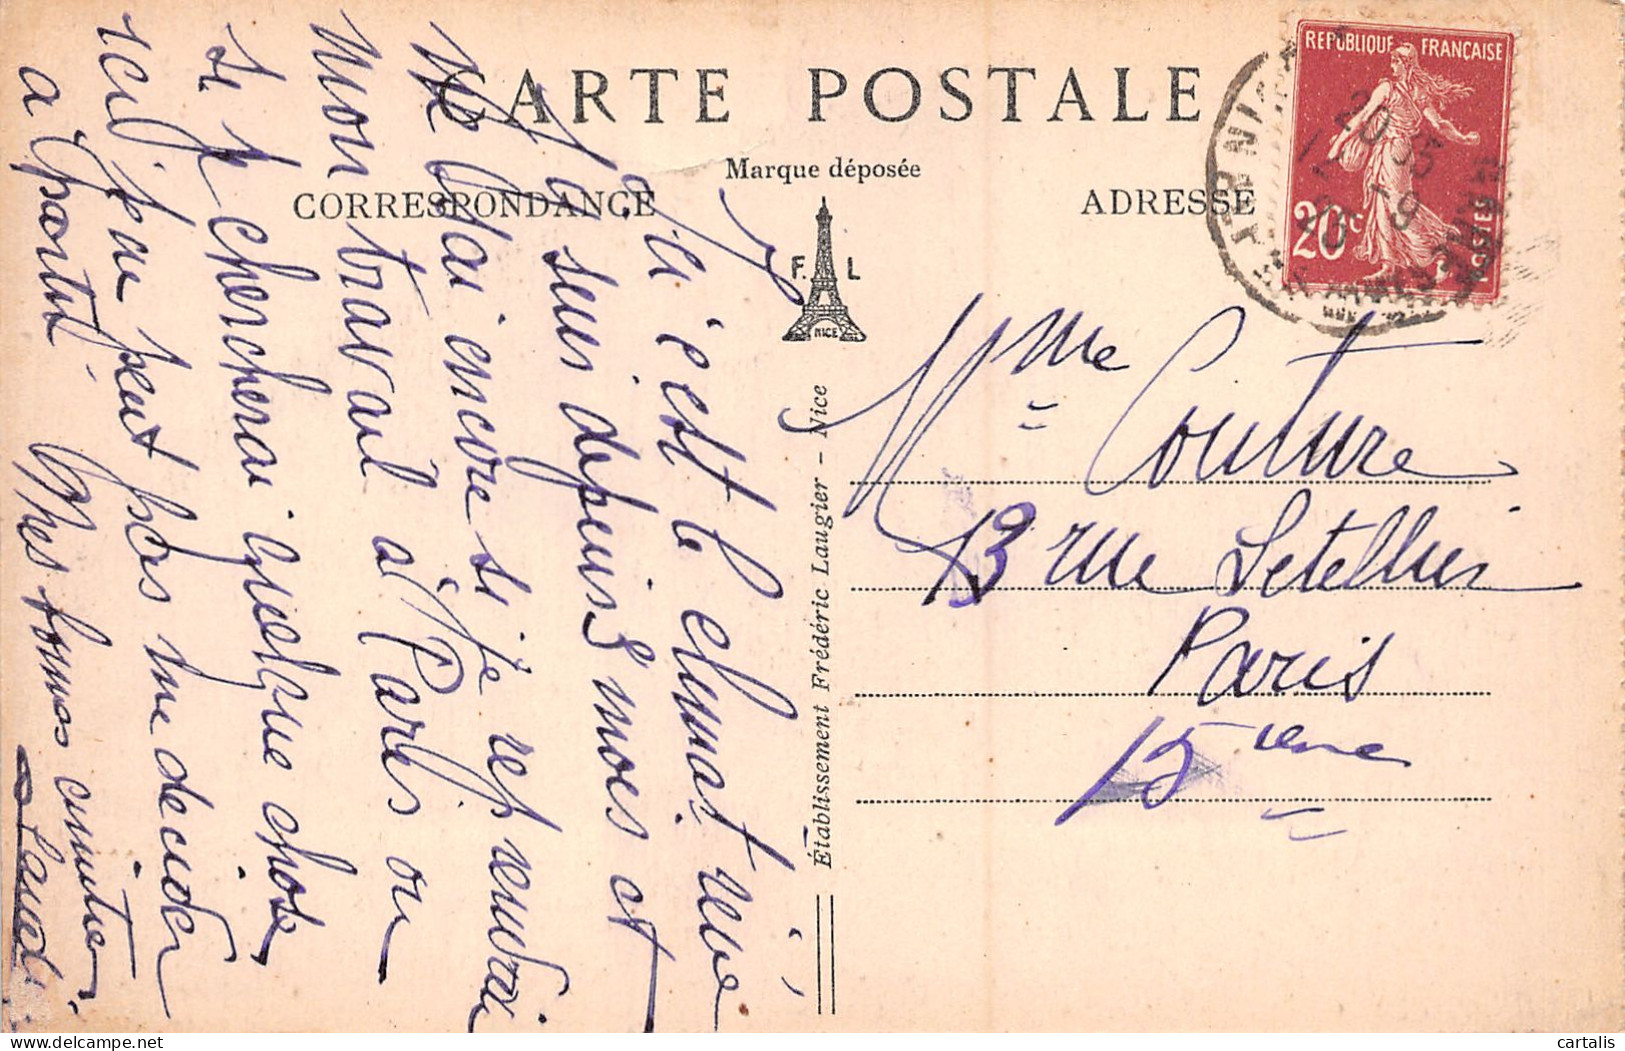 CARTE POSTALE
Marque déposée
CORRESPONDANCE
ADRESSE
F. L
NICE
Établissement Frédéric Laugier – Nice
REPUBLIQUE FRANÇAISE
20c
POSTES
20 35
Mme Couture
13 rue Letellier
Paris
15eme
Ici c'est le climat rêvé
J'y suis depuis 3 mois et
Ne sai encore si je reprendrai
Mon travail à Paris ou
si je chercherai quelque chose
ici, je ne peut pas me decider
a partir. Mes bonnes amitiés